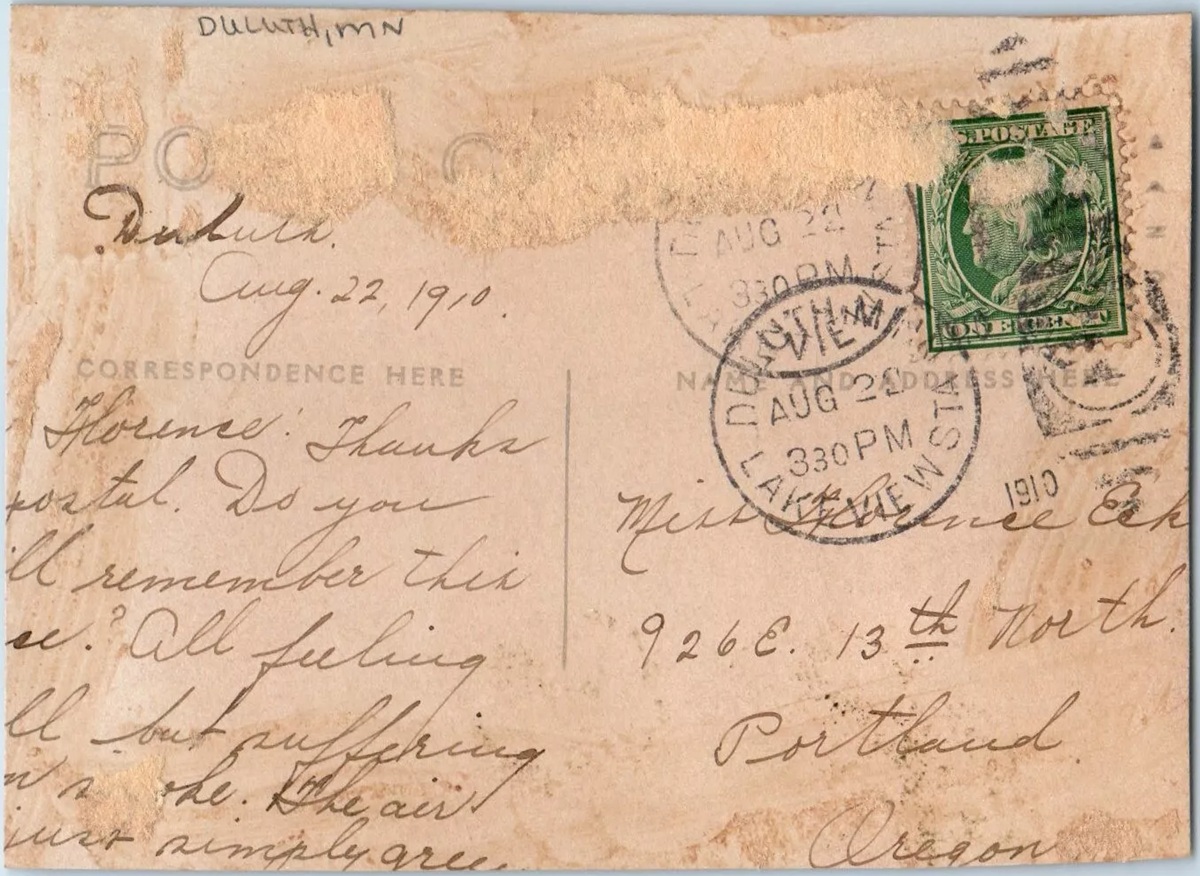 DULUTH, MN
PO C
Duluth.
Aug. 22, 1910.
CORRESPONDENCE HERE
Florence! Thanks
postal. Do you
ll remember this
se? All feeling
ll but suffering
oke. The air
just simply gree
S. POSTAGE
ONE CENT
AUG 22
330 PM
DULUTH, M
AUG 22
330 PM
LAKEVIEW STA
1910
NAME AND ADDRESS HERE
Miss Florence Eck
926 E. 13th North.
Portland
Oregon